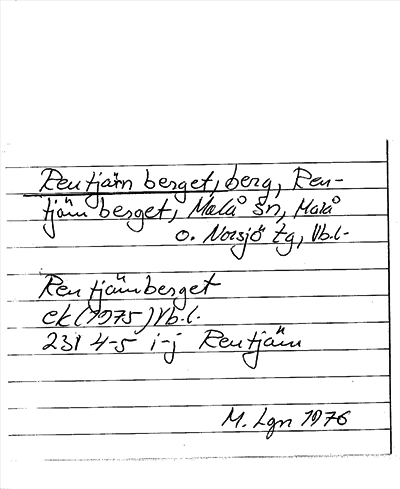 Rentjärn berget, berg, Ren-
tjärn berget, Malå Sn, Malå
o. Norsjö tg, Vb.l.
Ren tjärnberget
ek (1975) Vb.l.
231 4-5 i-j Rentjärn
M. Lgn 1976